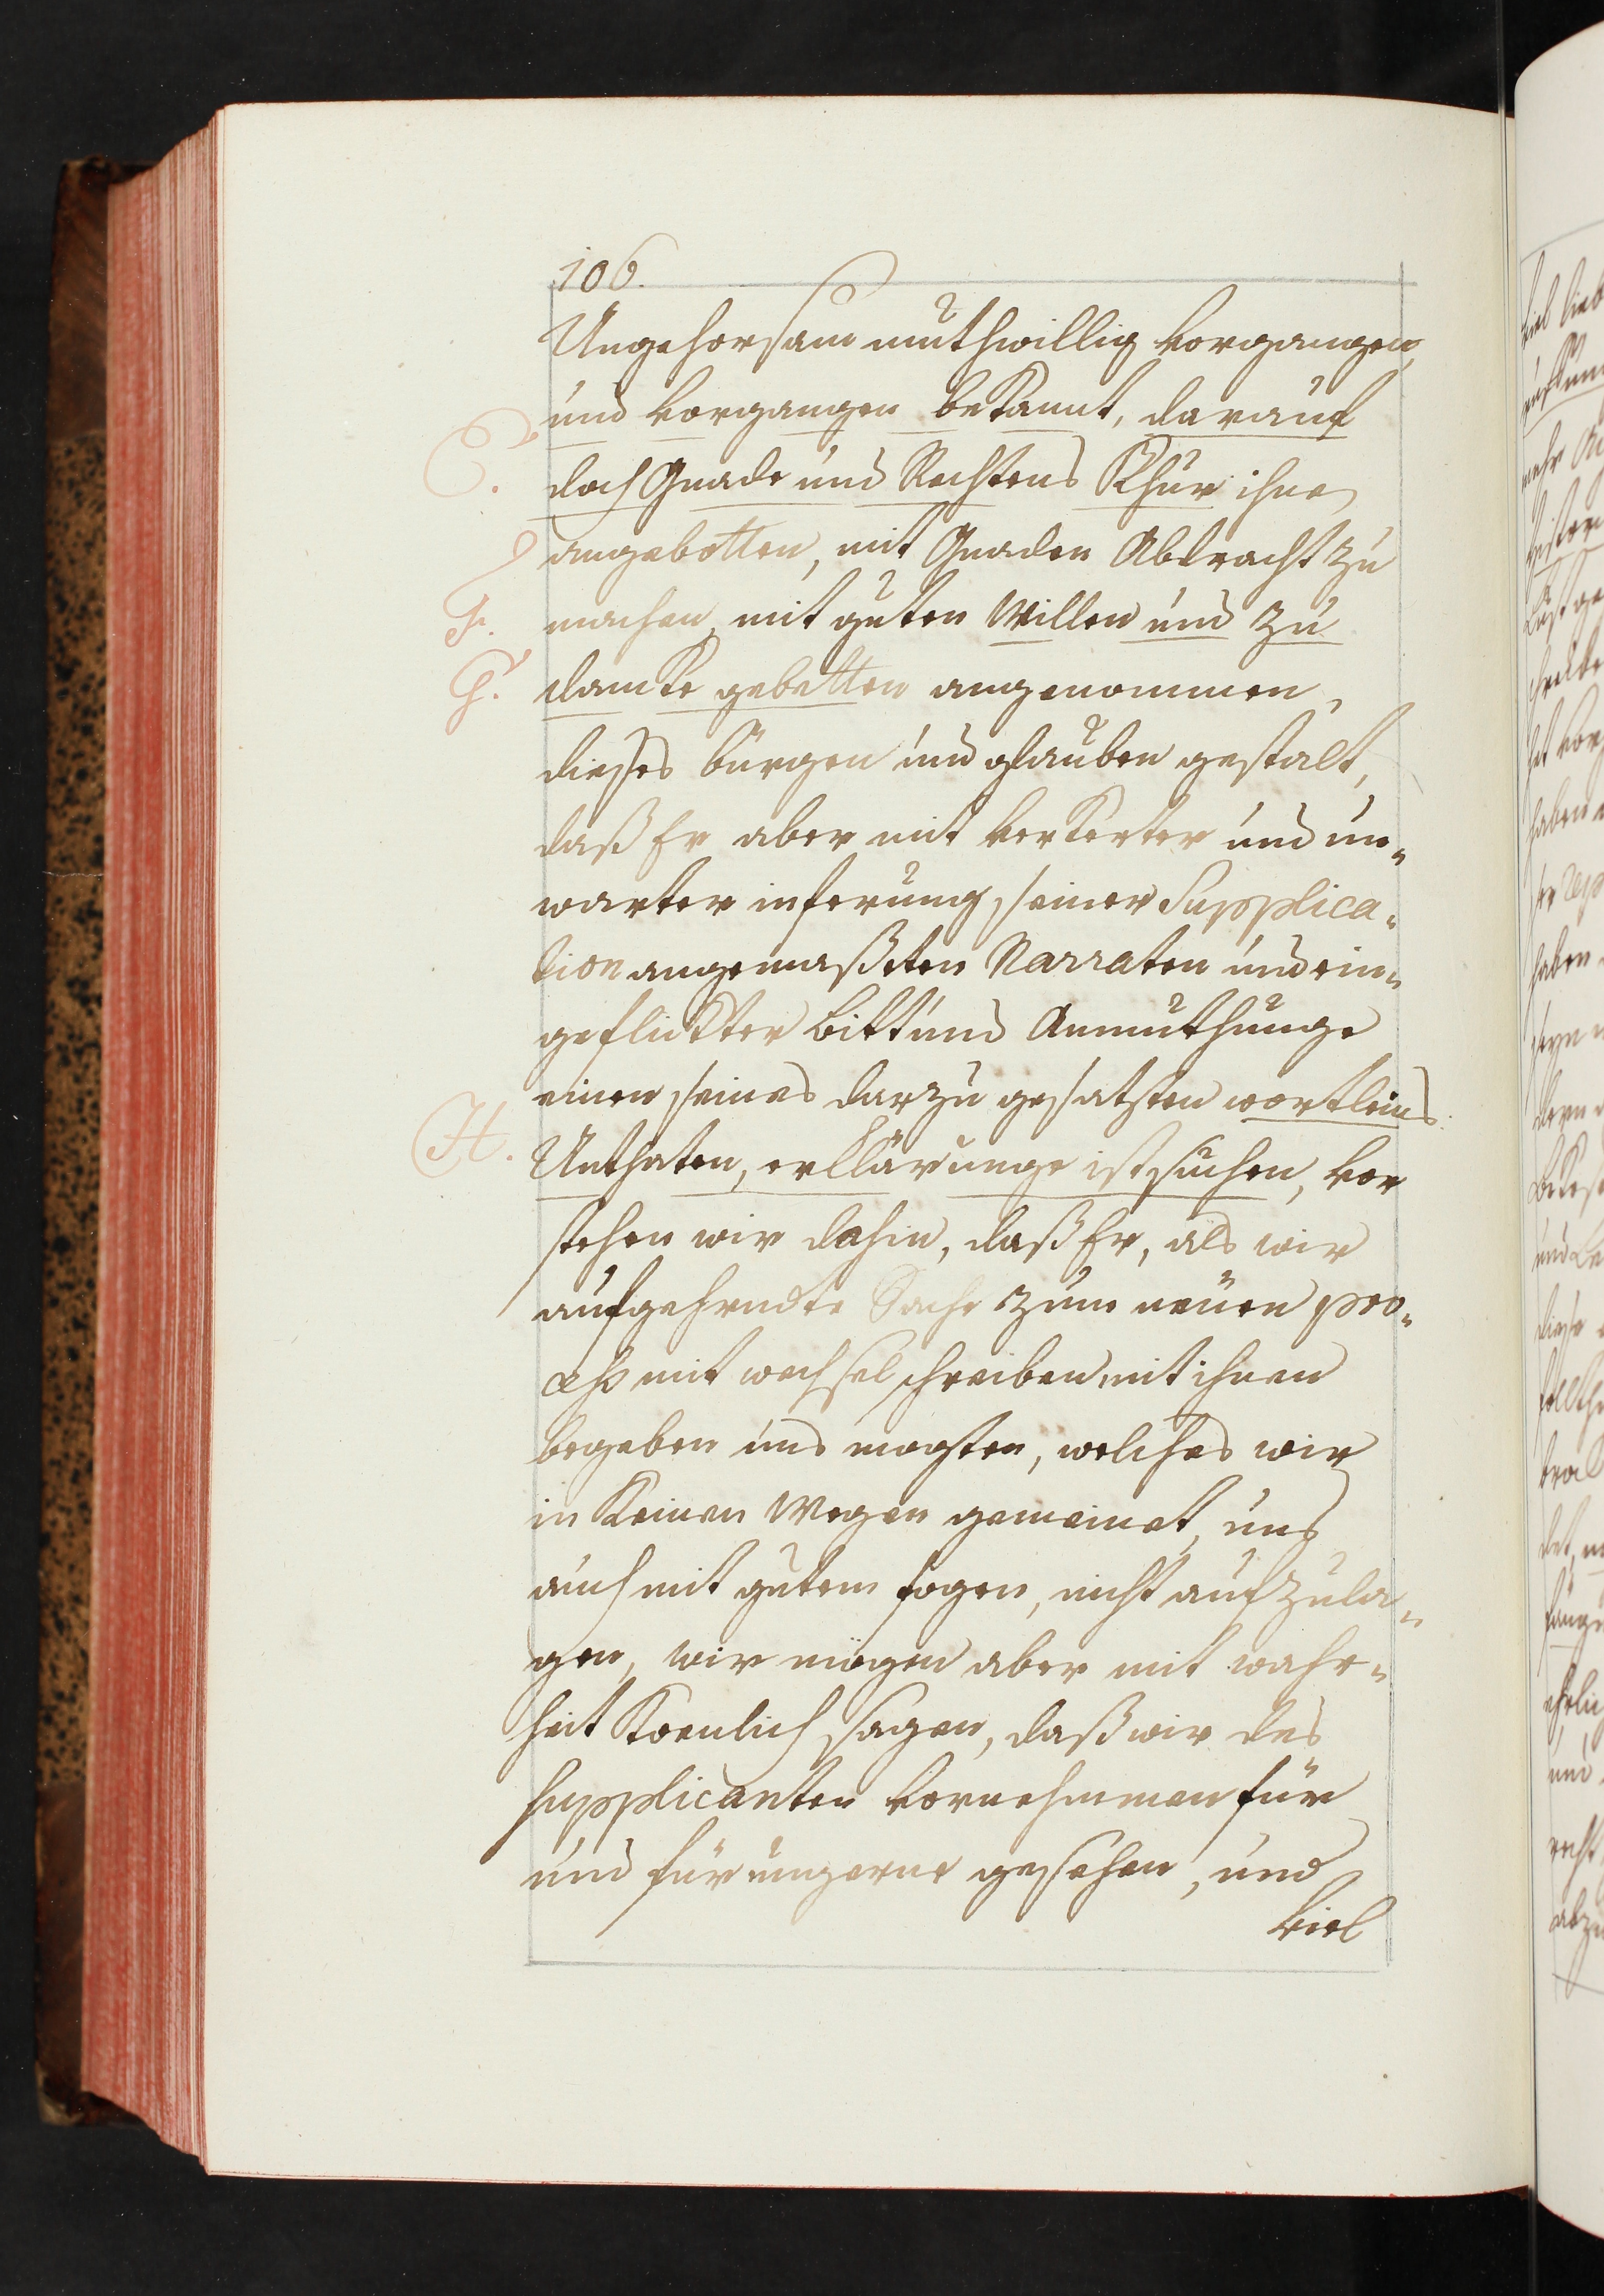 106.
Ungehorsam muthwillig vorgangen,
und vorgangen bekannt, darauf
E. doch Gnade und Rechtens Khür ihne
angebotten, mit Gnaden Abtracht zu
F. machen, mit guten Willen und zu
G. dancke gebetten angenommen,
dießes bürgen und glauben gestalt,
daß Er aber mit verkerter und un-
warter inserung, seiner Supplica-
tion angemaßeten Narraten und ein-
geflickter Bitt und Anmuthunge
einen seines darzu gesatzten wortleins
H. Unthaten, erklärunge ist suchen, vor
stehen wir dahin, daß Er, als wir
aufgehendte Sache zum neuen pro-
ceß mit wechsel schreiben mit ihnen
begeben uns mogten, welches wir
in Keinen Wegen gemeinet, uns
auch mit gutem fogen, nicht aufzula-
gen, wir mögen aber mit wahr-
heit Koenlich sagen, daß wir des
supplicanten vornehmmen für
und für ungerne gesehen, und
viel